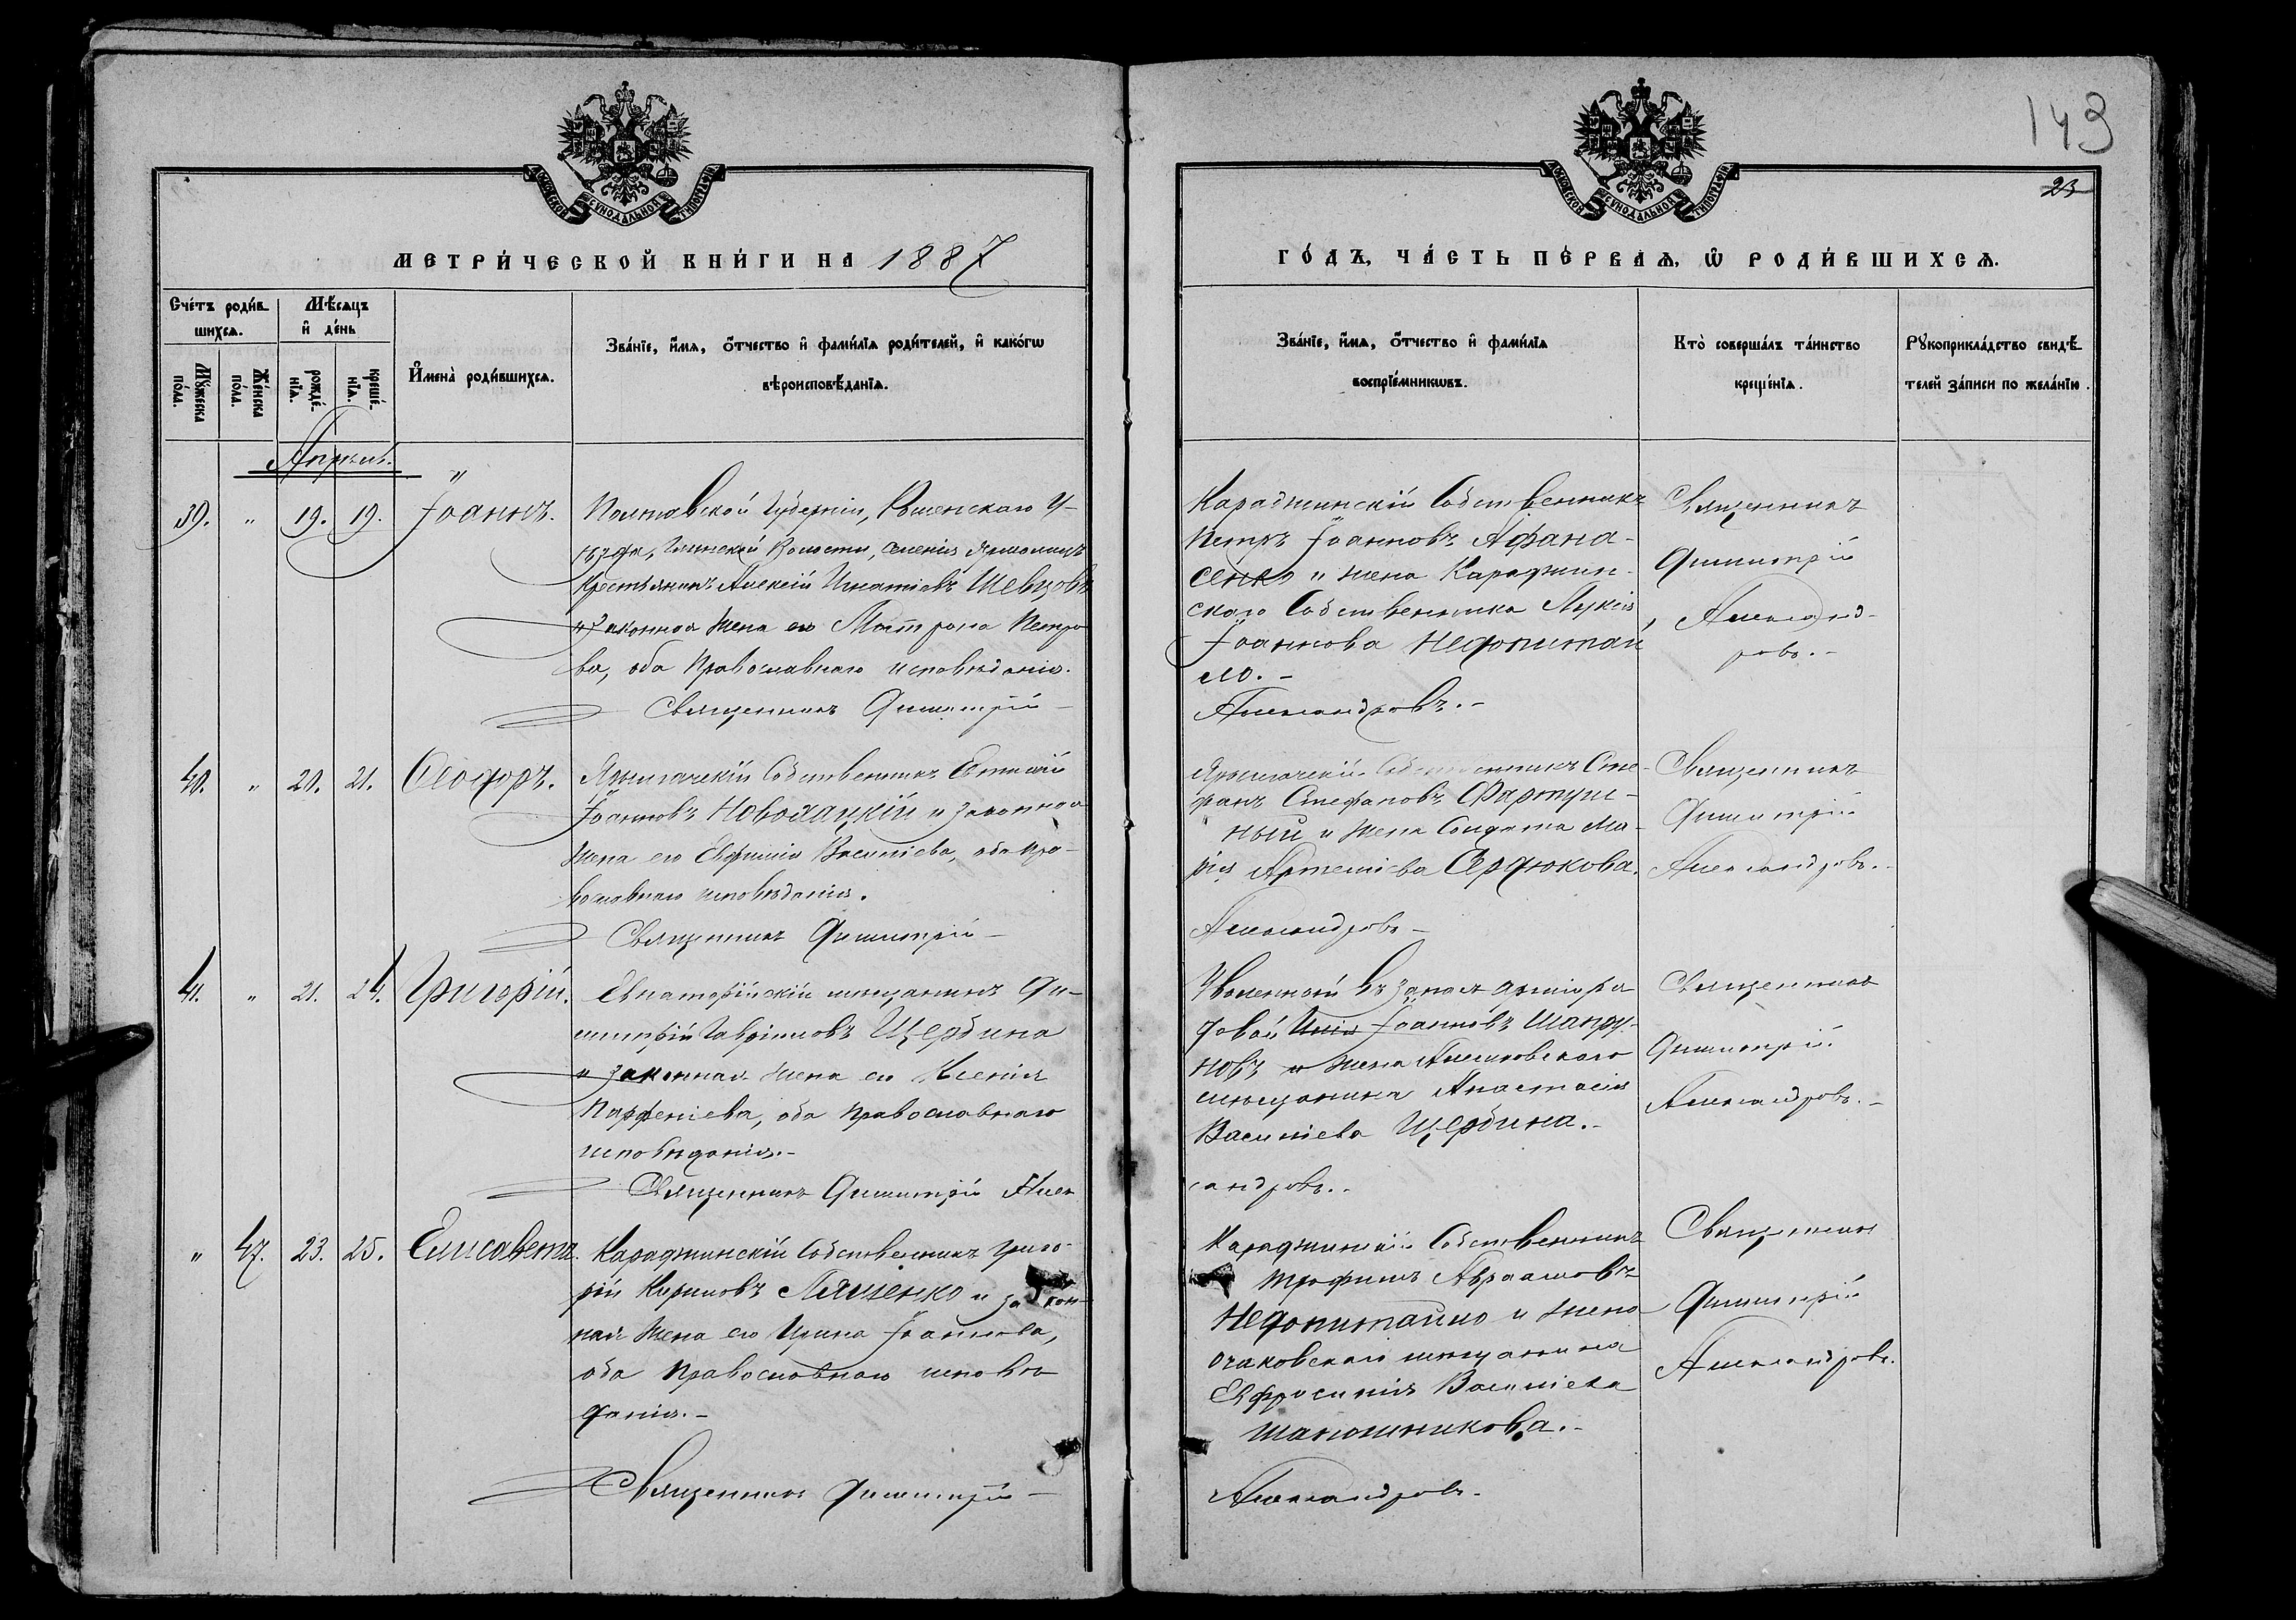 143
23
МОСКОВСКОЙ СѴНОДАЛЬНОЙ ТИПОГРАФІИ
МОСКОВСКОЙ СѴНОДАЛЬНОЙ ТИПОГРАФІИ
МЕТРИ́ЧЕСКОЙ КНИ́ГИ НА 1887
ГО́ДЪ, ЧА́СТЬ ПЕ́РВАѦ, Ѽ РОДИ́ВШИХСѦ.
Сче́тъ роди́вшихсѧ.
Мꙋ́жеска по́ла.
Же́нска по́ла.
Мѣ́сѧцъ и҆ де́нь
рожде́нїѧ.
креще́нїѧ.
И҆мена̀ роди́вшихсѧ.
Зва́нїе, и҆́мѧ, ѻ҆́тчество и҆ фами́лїѧ роди́телей, и҆ како́гѡ
вѣроисповѣ́данїѧ.
Зва́нїе, и҆́мѧ, ѻ҆́тчество и҆ фами́лїѧ
воспрїе́мникѡвъ.
Кто̀ соверша́лъ та́инство
креще́нїѧ.
Рꙋкоприкла́дство свидѣ́-
телей за́писи по жела́нїю.
Апрѣль.
39. " 19. 19. Іоаннъ.
Полтавской Губерніи, Роменскаго У-
ѣзда, Глинской Волости, селенія
Крестьянинъ Алексій Игнатіевъ Шевцовъ
и Законная жена его Матрона Петро-
ва, оба Православнаго исповѣданія.
Священникъ Димитрій
Караджинскій Собственникъ
Петръ Іоанновъ Афана-
сенко и жена Караджин-
скаго Собственника Лукія
Іоаннова Недопитай
ло.-
Александровъ.-
Священникъ
Димитрій
Александ-
ровъ.-
40. " 20. 21. Ѳеодоръ.
Ярылгачскій Собственникъ Евтихій
Іоанновъ Новохацкій и законная
жена его Евфимія Василіева, оба пра-
вославнаго исповѣданія.
Священникъ Димитрій
Ярылгачскій Собственникъ Сте-
фанъ Стефановъ Фартуш-
ный и жена Солдата Ма-
рія Артеміева Сердюкова.
Александровъ
Священникъ
Димитрій
Александровъ.
41. " 21. 24. Григорій.
Евпаторійскій мѣщанинъ Ди-
митрій Гавріиловъ Щербина
и законная жена его Ксенія
Парфеніева, оба православнаго
исповѣданія.-
Священникъ Димитрій Алек
Уволенный въ запасъ арміи ря
довой Илія Іоанновъ Шапру-
новъ и жена Алешковскаго
мѣщанина Анастасія
Василіева Щербина.-
сандровъ.
Священникъ
Димитрій
Александровъ.-
" 47. 23. 25. Елисавета.
Караджинскій Собственникъ Григо-
рій Кириловъ Ляшенко и закон-
ная жена его Ирина Іоаннова,
оба православнаго исповѣ
данія.-
Священникъ Димитрій
Караджинскій Собственникъ
Трофимъ Авраамовъ
Недопитайло и жена
очаковскаго мѣщанина
Евфросинія Василіева
Шапошникова.-
Александровъ.
Священникъ
Димитрій
Александровъ.